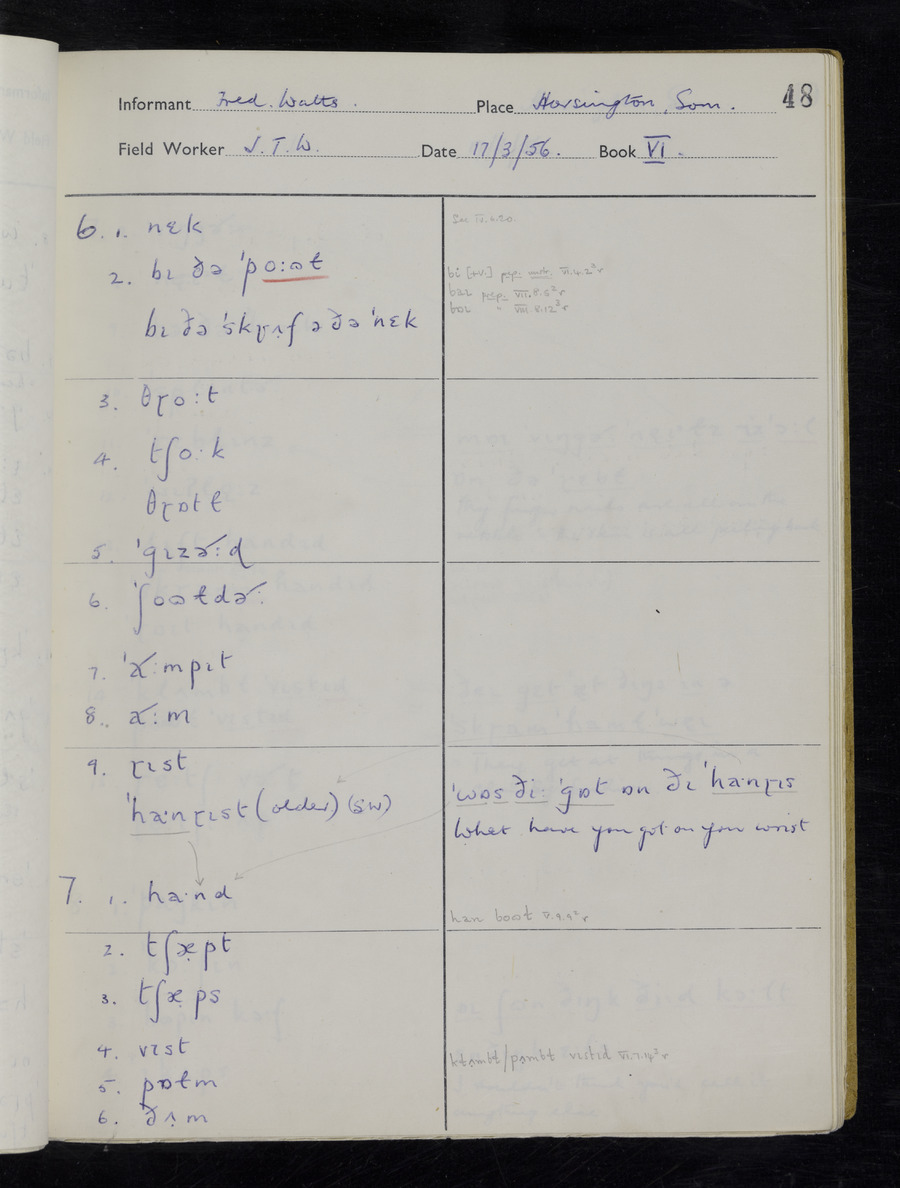 Informant Fred. Watts. Place Horsington, Som. 48
Field Worker J. T. W. Date 17/3/56. Book VI.
6. 1. nɛk
2. bɪ ðə ˈpo:ɷɫ
bɪ ðə ˈskɽʌ̣f ə ðə ˈnɛk
3. θɽo:t
4. tʃo:k
θɽɒtɫ
5. ˈgɪzə˞:d
6. ˈʃoɷɫdə˞:
7. ˈa˞:mpɪt
8. a˞:m
9. ɽɪst
ˈha·nɽɪst (older) (SW)
7. 1. ha·nd
2. tʃæ̣pt
3. tʃæ̣ps
4. vɪst
5. pɒɫm
6. ðʌ̣m
See IV.4.20.
bi [+V.] prep. unstr. VI.4.2³r
baɪ prep. VII.8.5²r
bɒɪ " VIII.8.12³r
ˈwɒs ði: ˈgɒt ɒn ðɪ ˈha·nɽɪs
What have you got on your wrist
han boɷt V.9.9²r